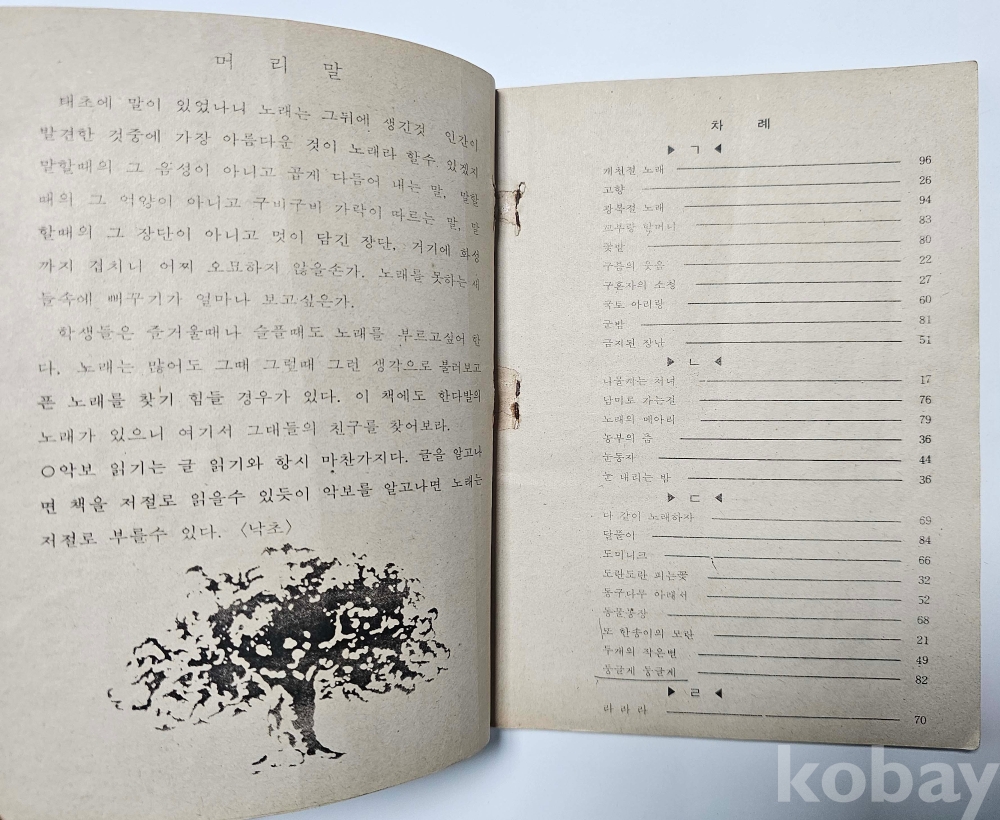 머 리 말
태초에 말이 있었나니 노래는 그뒤에 생긴것 인간이
발견한 것중에 가장 아름다운 것이 노래라 할수 있겠지
말할때의 그 음성이 아니고 곱게 다듬어 내는 말, 말할
때의 그 억양이 아니고 구비구비 가락이 따르는 말, 말
할때의 그 장단이 아니고 멋이 담긴 장단, 거기에 화성
까지 겹치니 어찌 오묘하지 않을손가. 노래를 못하는 새
들속에 뻐꾸기가 얼마나 보고싶은가.
학생들은 즐거울때나 슬플때도 노래를 부르고싶어 한
다. 노래는 많어도 그때 그럴때 그런 생각으로 불러보고
픈 노래를 찾기 힘들 경우가 있다. 이 책에도 한다발의
노래가 있으니 여기서 그대들의 친구를 찾어보라.
○악보 읽기는 글 읽기와 항시 마찬가지다. 글을 알고나
면 책을 저절로 읽을수 있듯이 악보를 알고나면 노래는
저절로 부를수 있다. 〈낙초〉
차 례
▶ ㄱ ◀
개천절 노래 96
고향 26
광복절 노래 94
꼬부랑 할머니 83
꽃밤 80
구름의 웃음 22
구혼자의 소청 27
국토 아리랑 60
군밤 81
금지된 장난 51
▶ ㄴ ◀
나물캐는 처녀 17
남미로 가는길 76
노래의 메아리 79
농부의 춤 36
눈동자 44
눈 내리는 밤 36
▶ ㄷ ◀
다 같이 노래하자 69
달풀이 84
도미니크 66
도란도란 피는꽃 32
동구나무 아래서 52
동물농장 68
또 한송이의 모란 21
두개의 작은별 49
둥글게 둥글게 82
▶ ㄹ ◀
라 라 라 70
kobay